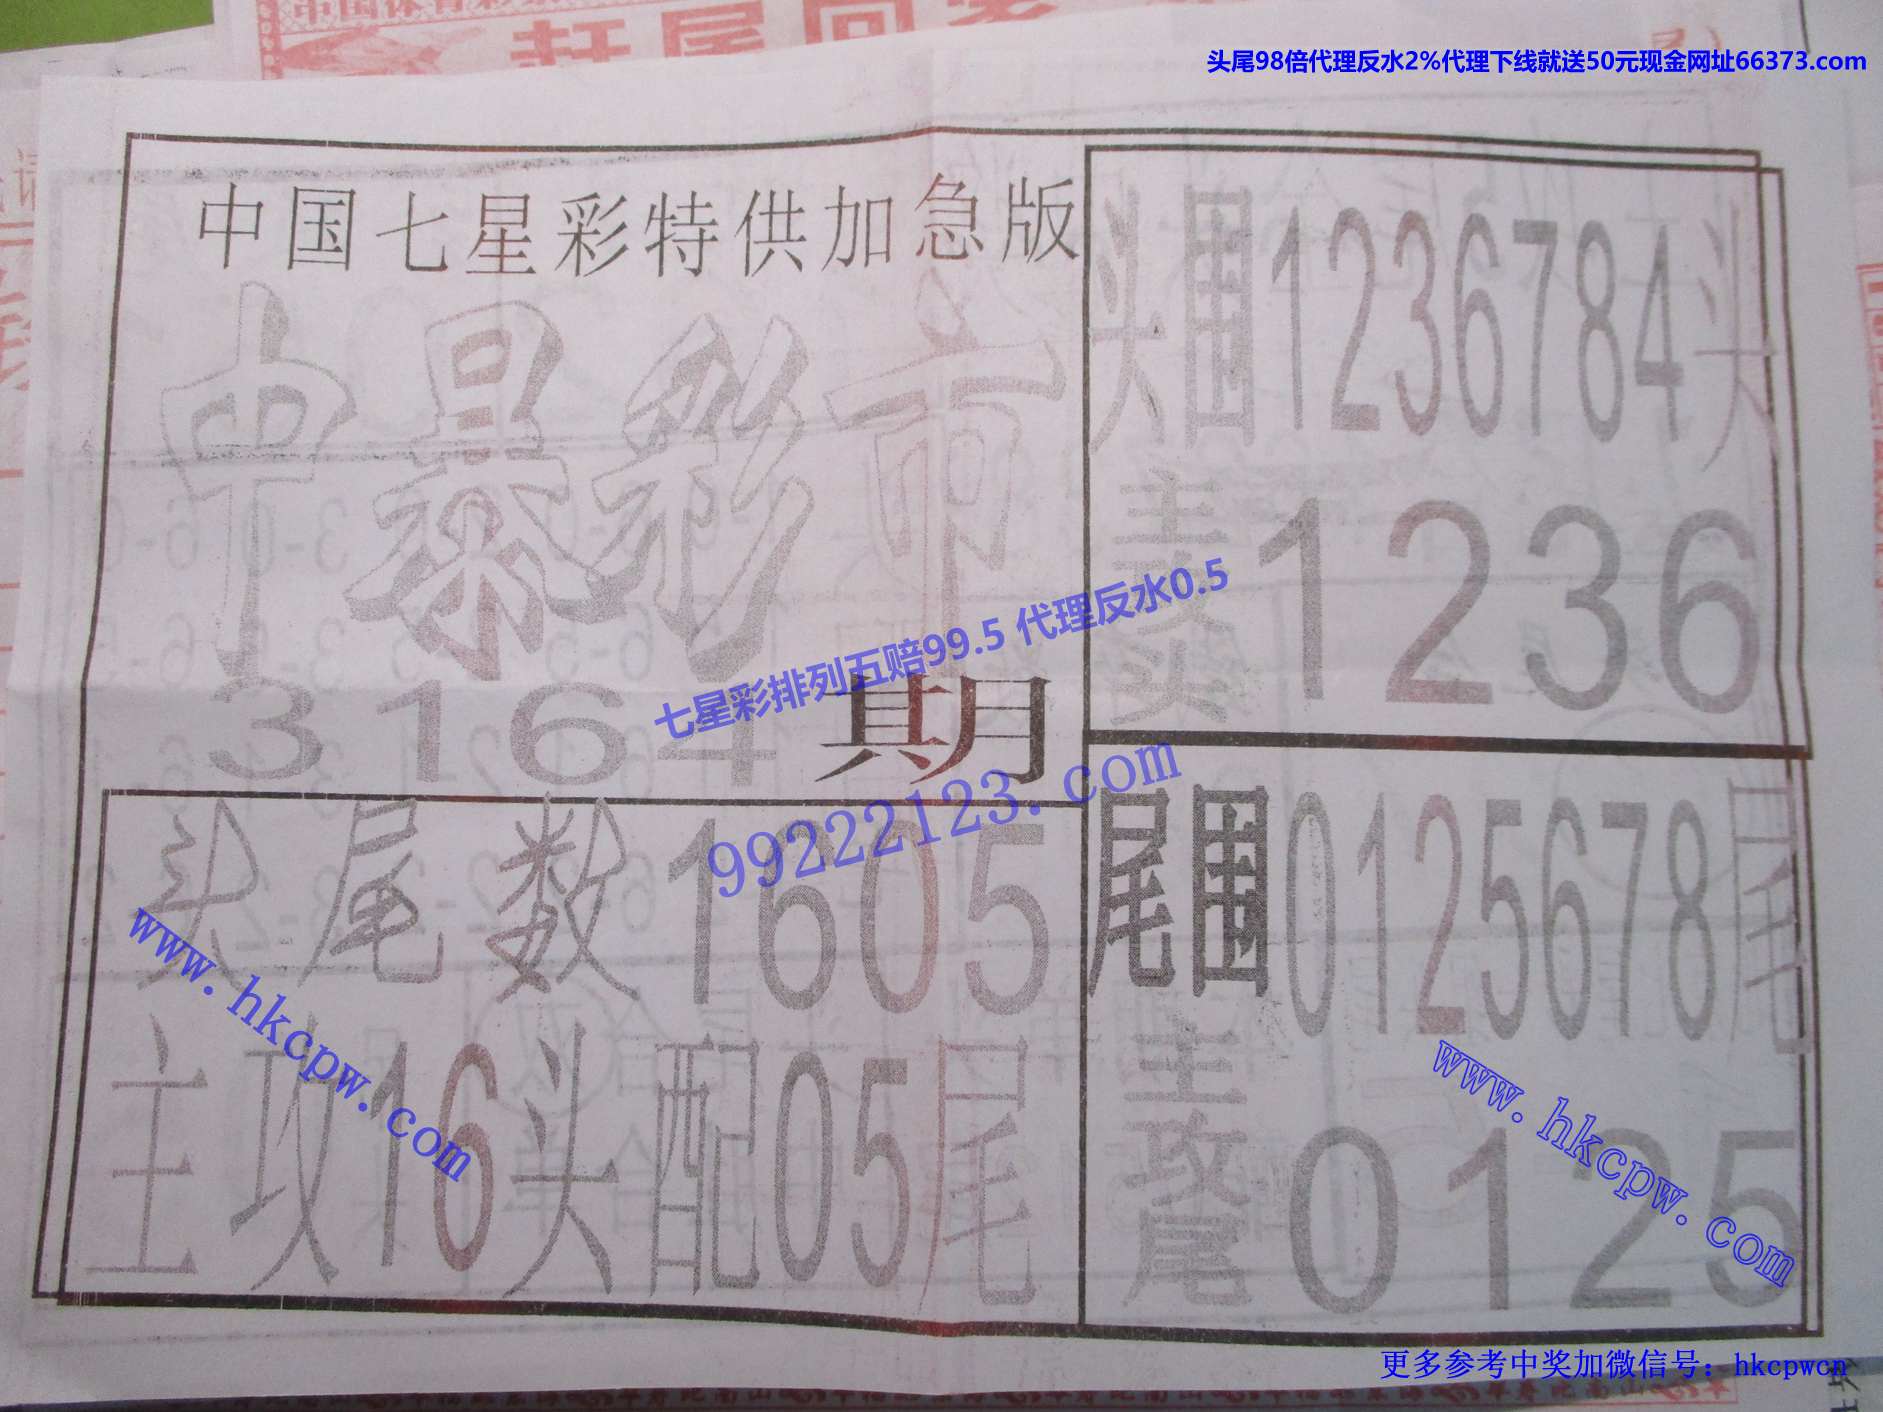 头尾98倍代理反水2%代理下线就送50元现金网址66373.com
中国七星彩特供加急版
中暴彩市
3164期
七星彩排列五赔99.5 代理反水0.5
99222123.com
头尾数1605
主攻16头配05尾
www.hkcpw.com
头围1236784头
主攻头
1236
尾围0125678尾
主攻尾
0125
www.hkcpw.com
更多参考中奖加微信号：hkcpwcn